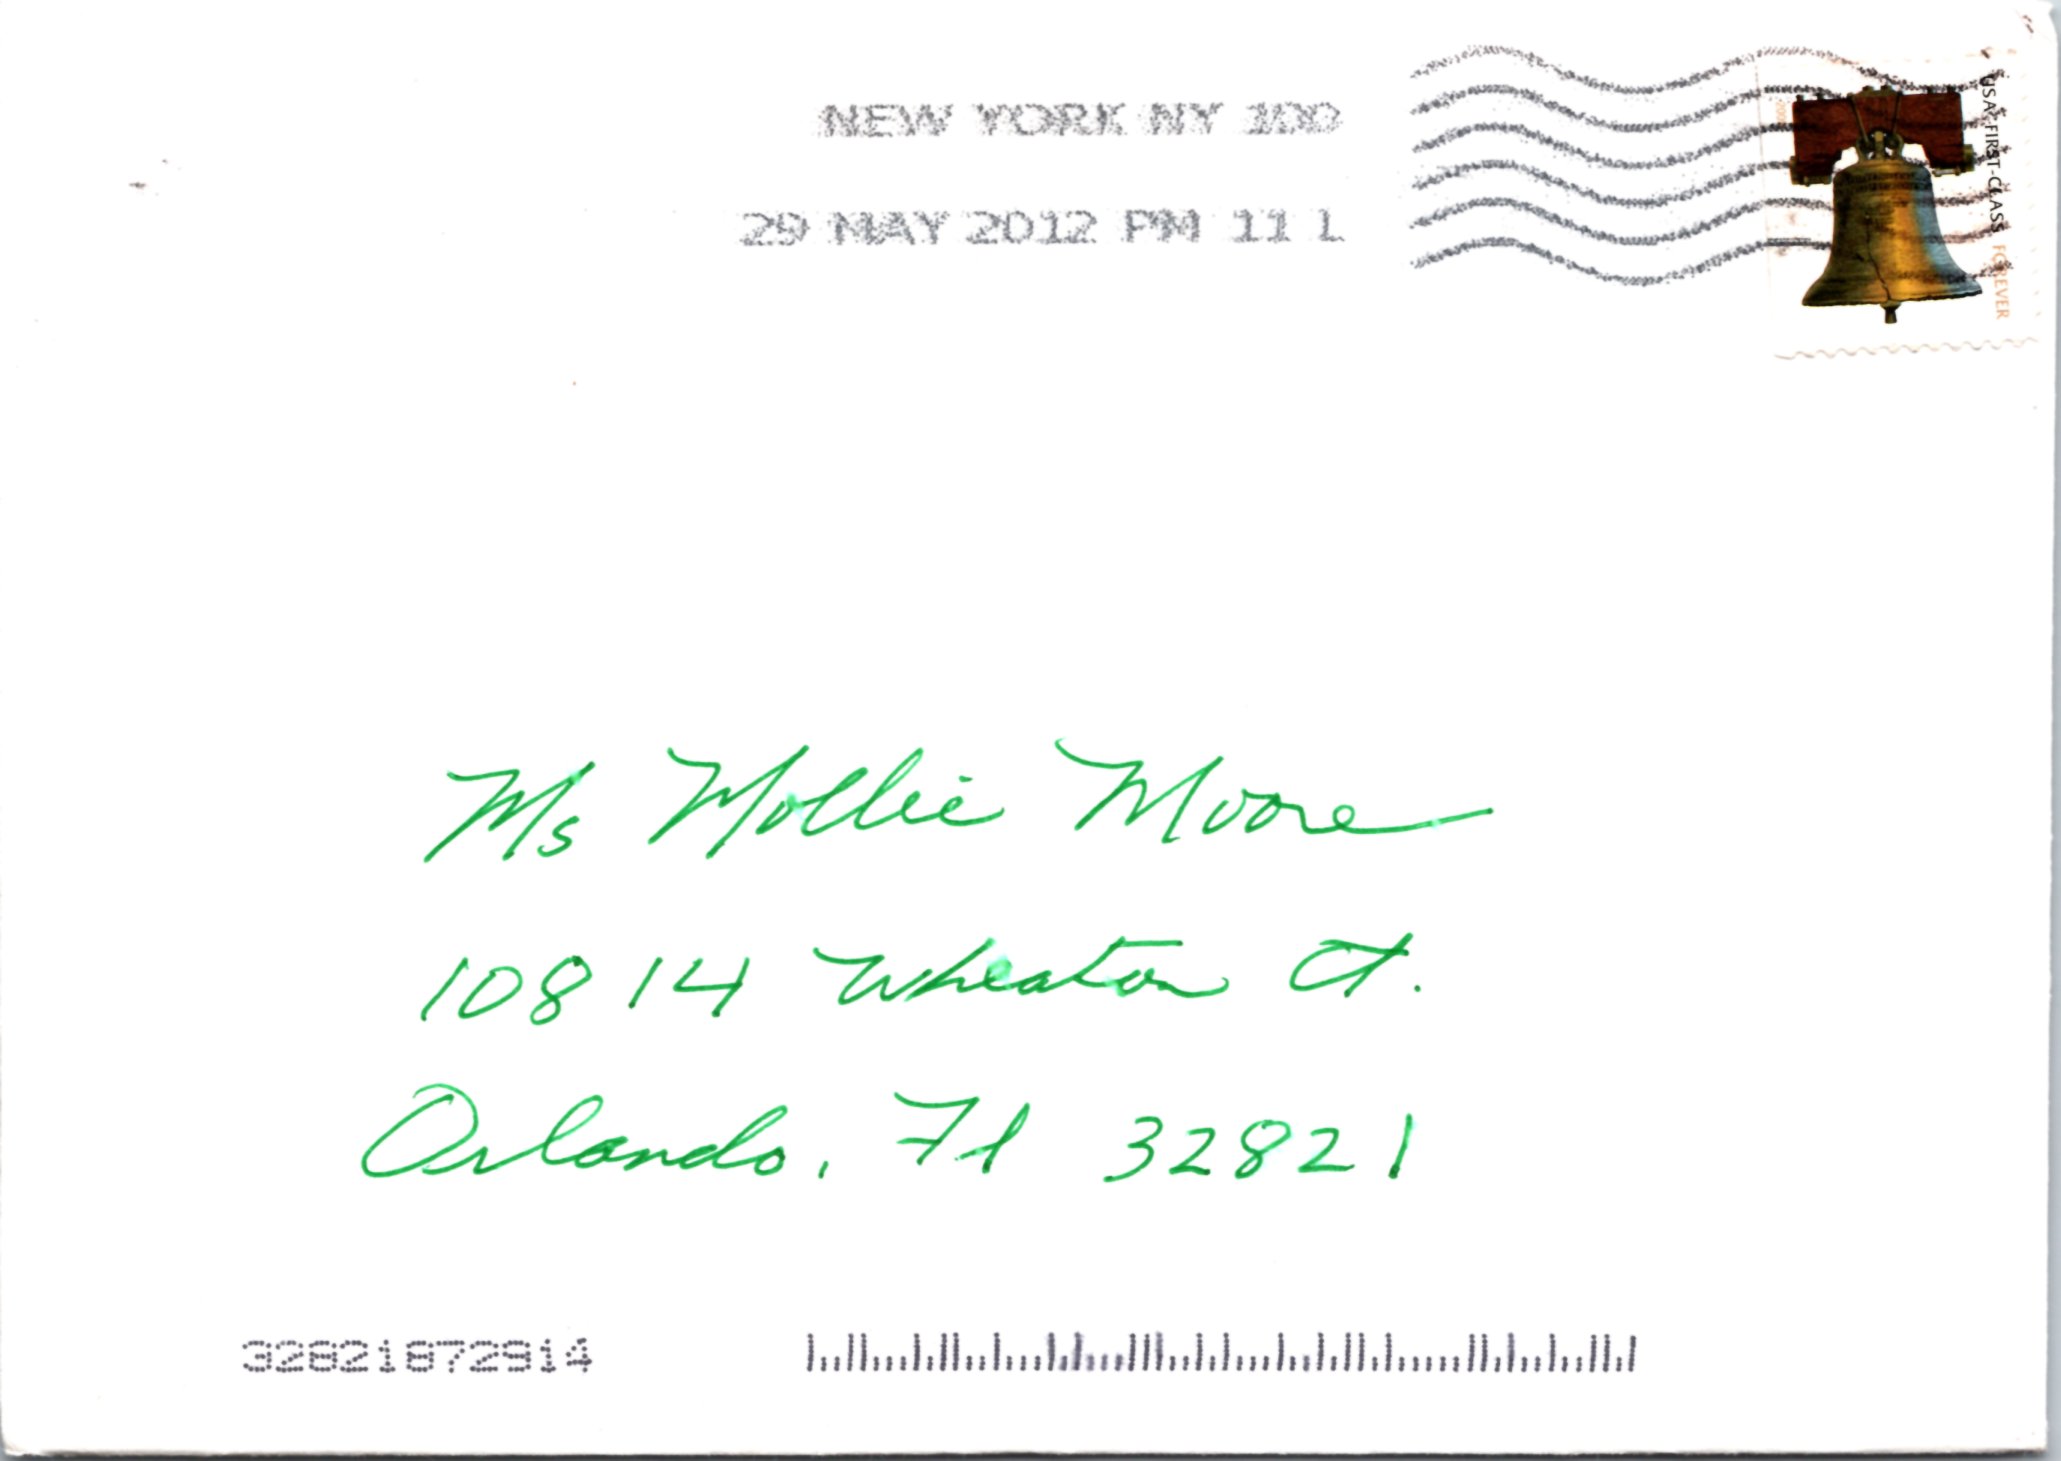 NEW YORK NY 100
29 MAY 2012 PM 11 L
USA FIRST-CLASS FOREVER
2009
Ms Mollie Moore
10814 Wheaton Ct.
Orlando, Fl 32821
32821872914